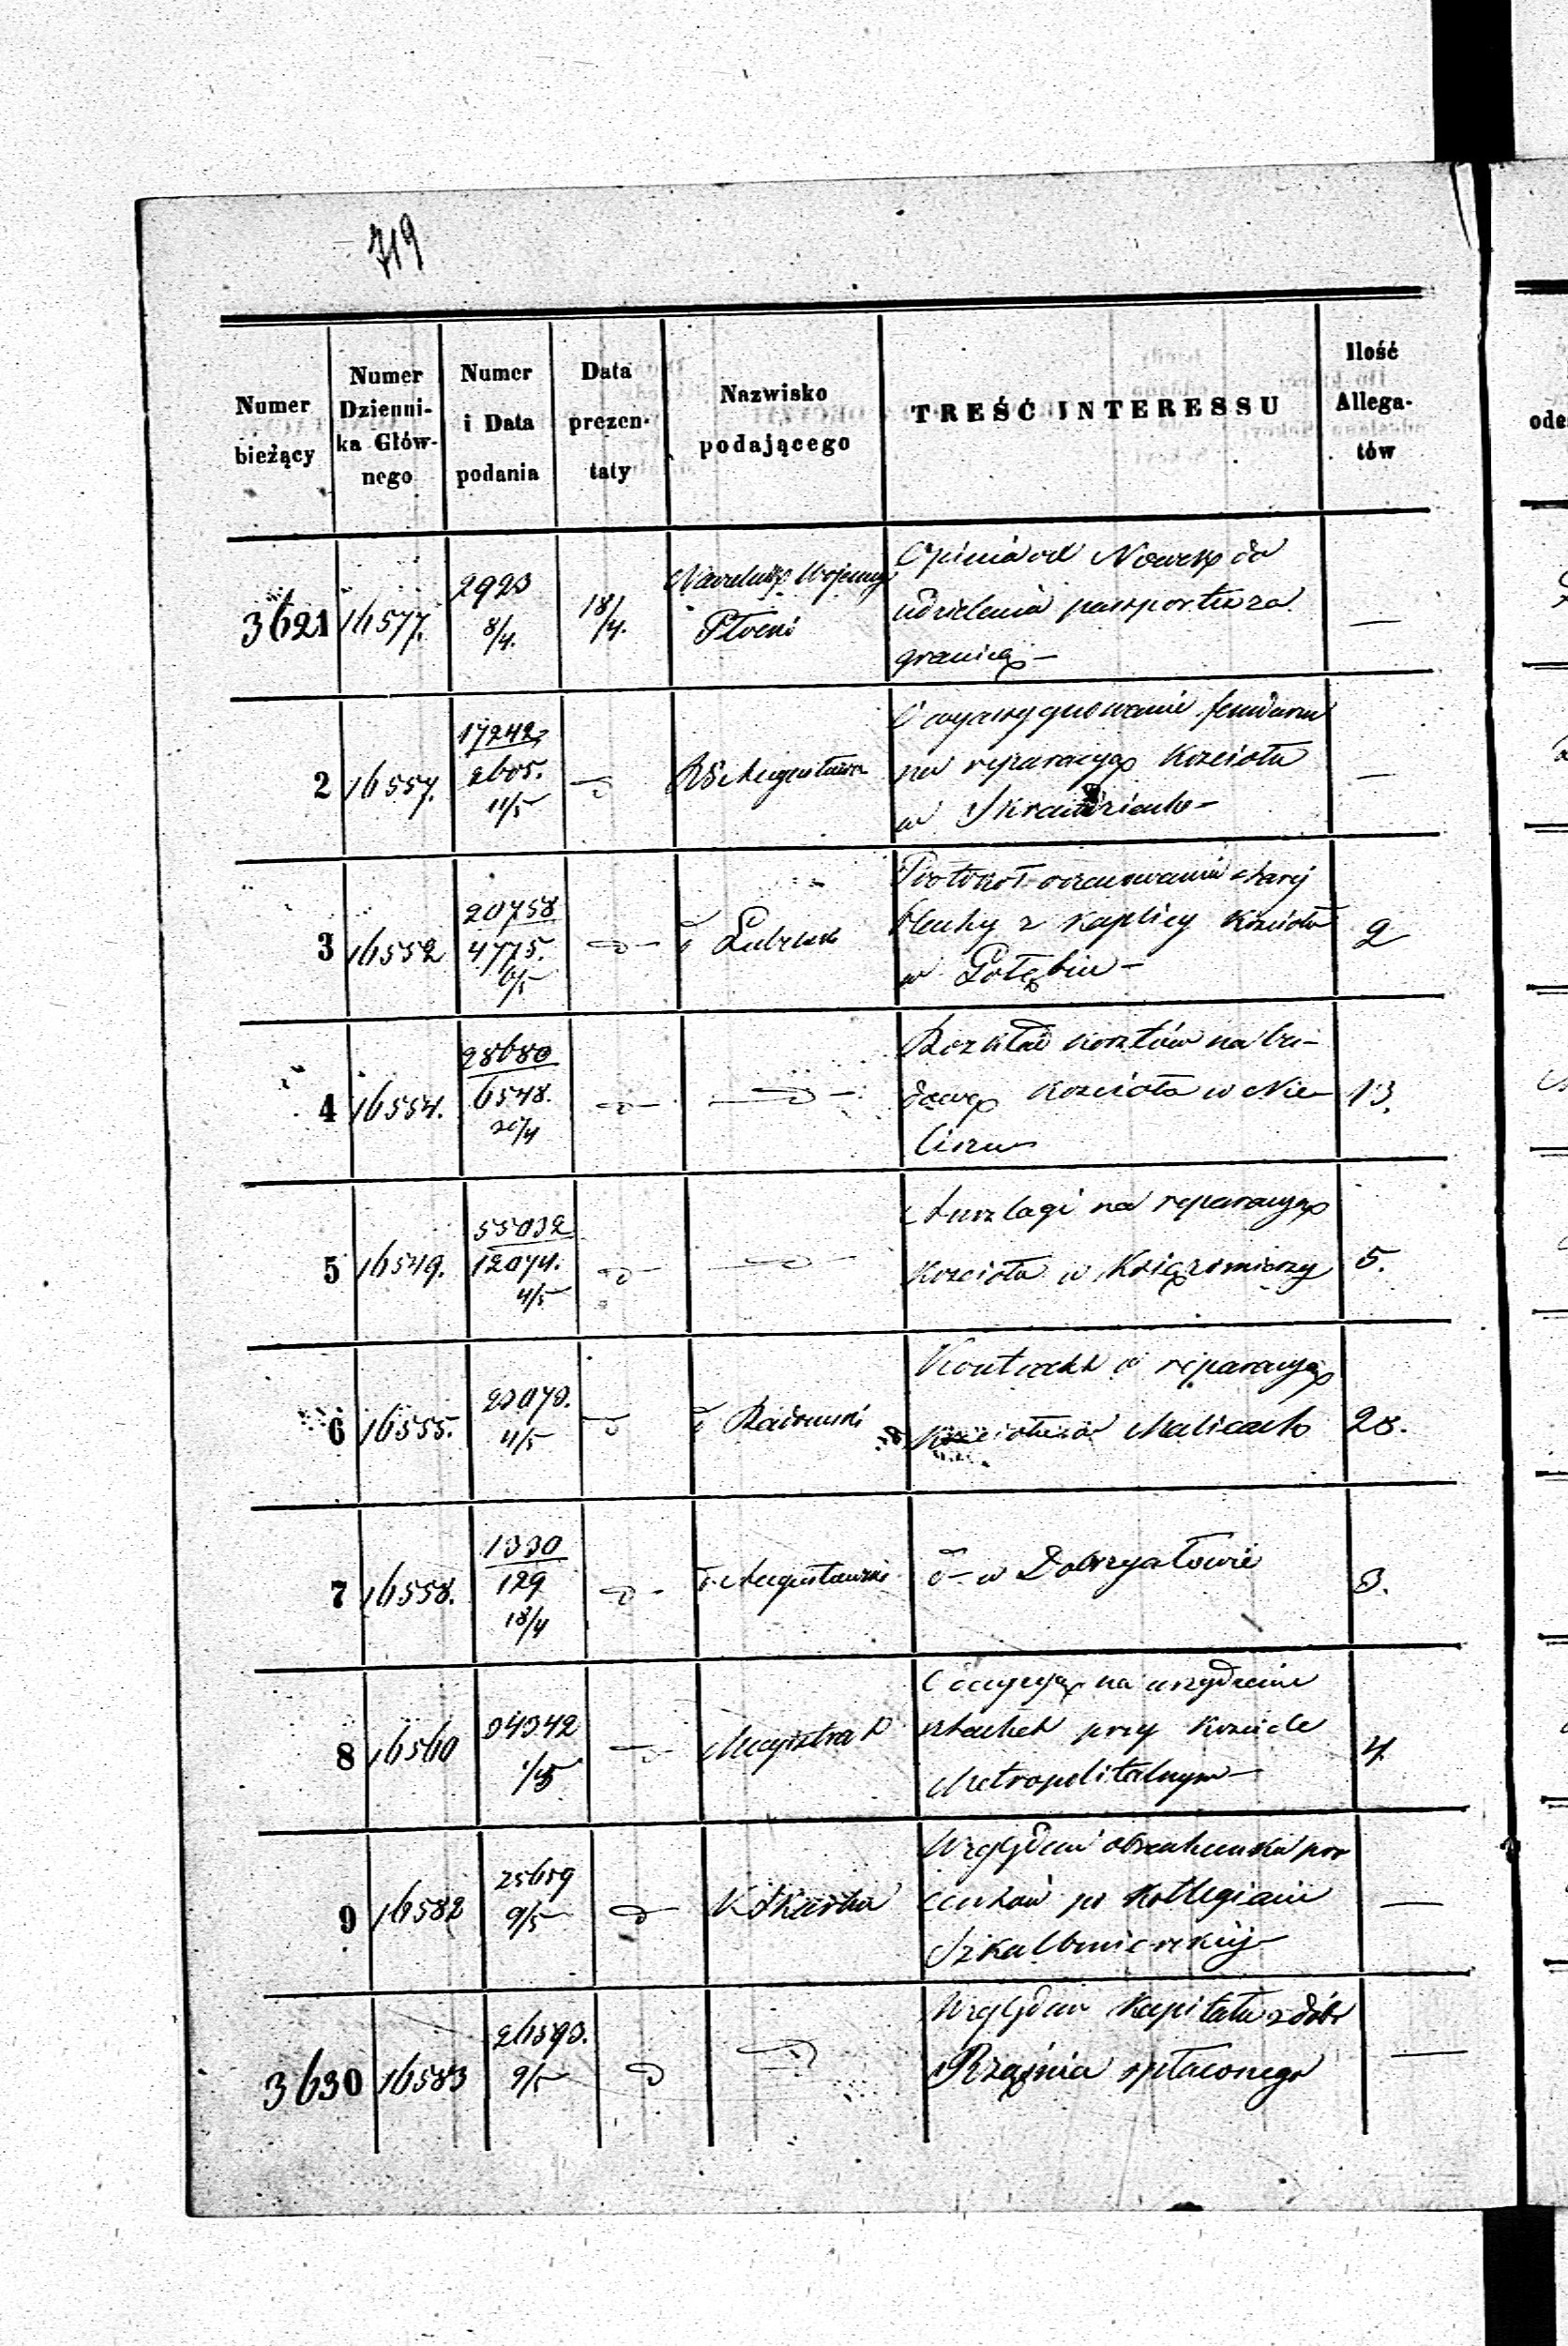 719
Numer bieżący | Numer Dzienni-ka Głów-nego | Numer i Data podania | Data prezen-taty | Nazwisko podającego | TREŚĆ INTERESSU | Ilość Allega-tów
3621 | 16577. | 2923 8/4. | 18/4. | Naczelnik Wojenny Płocki | Opinia od Nowesp do
udzielenia paszportu za
granicę – | —
2 | 16557. | 17242 2605. 11/5 | d | Augustowa | O wyassygnowanie funduszu
na reparacyę Kościoła
w – | —
3 | 16552 | 20758 4775. 6/5 | d – | d Lubelsk | Protokół oszacowania starej
blachy z kaplicy Kościoła
w Gołębiu – | 2
4 | 16554. | 28680 6548. 20/4 | d – | — d – | Rozkład kosztów na bu-
dowę Kościoła w Nie-
liszu – | 13.
5 | 16549. | 55032 12074. 4/5 | d – | — d – | Anszlagi na reparacyę
Kościoła w Księżomierzy | 5.
6 | 16555. | 23073. 4/5 | d | d Radomski | Kontrakt o reparacyę
Kościoła w Malicach | 28.
7 | 16558. | 1330 129 18/4 | d – | d Augustowski | d – w Dobrzyałowie | 3.
8 | 16560 | 34342 1/5 | d | Magistrat | O decyzyę na urządzenie
sztachet przy Kościele
Metropolitalnym – | 4.
9 | 16582 | 25659 9/5 | d – | K Skarbu | Względem obrachunku pro
centów po Kollegiacie
Szkalbmierskiej – | —
3630 | 16583 | 26593. 9/5 | d | d | Względem Kapitału z dóbr
Rząśnia spłaconego | —